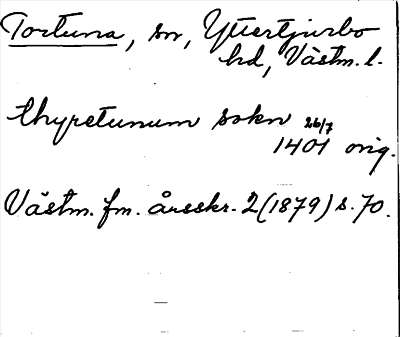 Tortuna, sn, Yttertjurbo
hd, Västm. l.
thyretunum sokn 26/7
1401 orig.
Västm. fm. årsskr. 2 (1879) s. 70.